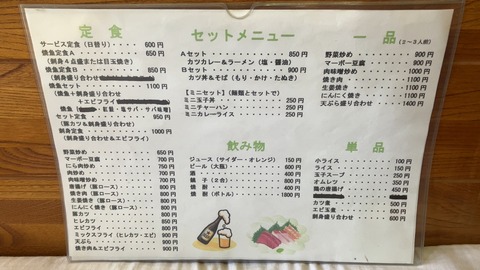 定食
サービス定食（日替り）・・・・ 600円
焼魚定食A・・・・・・・・ 650円
（刺身４点盛または目玉焼き）
焼魚定食B・・・・・・・・ 850円
（刺身盛り合わせ
焼魚セット・・・・・・・ 1100円
（焼魚＋刺身盛り合わせ
＋エビフライ
焼魚
・紅鮭・塩サバ・サバ味噌）
セット定食・・・・・・・ 950円
（豚カツ＆刺身盛り合わせ）
刺身定食・・・・・・・・ 1000円
（刺身盛り合わせ＆エビフライ）
野菜炒め・・・・・・・・ 650円
マーボー豆腐・・・・・・ 650円
にら肉炒め・・・・・・・ 750円
肉炒め・・・・・・・・・ 750円
肉味噌炒め・・・・・・・ 750円
唐揚げ（豚ロース）・・・ 850円
焼き肉（豚ロース）・・・ 850円
生姜焼き（豚ロース）・・ 850円
にんにく焼き（豚ロース） 900円
豚カツ・・・・・・・・・ 850円
ヒレカツ・・・・・・・・ 850円
エビフライ・・・・・・・ 850円
ミックスフライ（ヒレカツ・エビ） 900円
天ぷら・・・・・・・・・ 900円
焼き肉＆エビフライ・・・ 950円
セットメニュー
Aセット・・・・・・・・ 850円
カツカレー＆ラーメン（塩・醤油）
Bセット・・・・・・・・ 900円
カツ丼＆そば（もり・かけ・たぬき）
【ミニセット】（麺類とセットで）
ミニ玉子丼・・・・・・・ 350円
ミニチャーハン・・・・・ 350円
ミニカレーライス・・・・ 250円
飲み物
ジュース（サイダー・オレンジ） 150円
ビール（大瓶）・・・・・ 550円
酒・・・・・・・・・・・ 400円
銚子（２合）・・・・・・ 600円
焼酎・・・・・・・・・・ 400円
焼酎（ボトル）・・・・・ 1800円
一品
（２～３人前）
野菜炒め・・・・・・・ 900円
マーボー豆腐・・・・・ 900円
肉味噌炒め・・・・・・ 1000円
焼き肉・・・・・・・・ 1100円
生姜焼き・・・・・・・ 1100円
にんにく焼き・・・・・ 1100円
天ぷら盛り合わせ・・・ 1400円
単品
小ライス・・・・・・・ 100円
ライス・・・・・・・・ 150円
玉子スープ・・・・・・ 250円
オムレツ・・・・・・・ 350円
鶏の唐揚げ・・・・・・
カツ煮・・・・・・・・ 500円
エビ玉煮・・・・・・・ 600円
刺身盛り合わせ・・・・ 600円